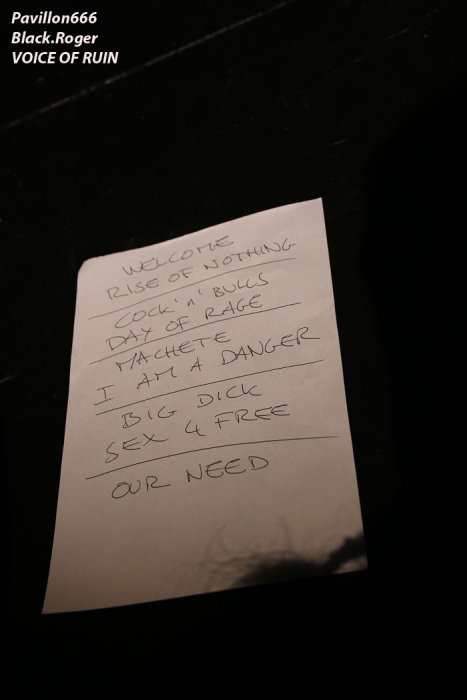 Pavillon666
Black.Roger
VOICE OF RUIN
WELCOME
RISE OF NOTHING
COCK 'n' BULLS
DAY OF RAGE
MACHETE
I AM A DANGER
BIG DICK
SEX 4 FREE
OUR NEED